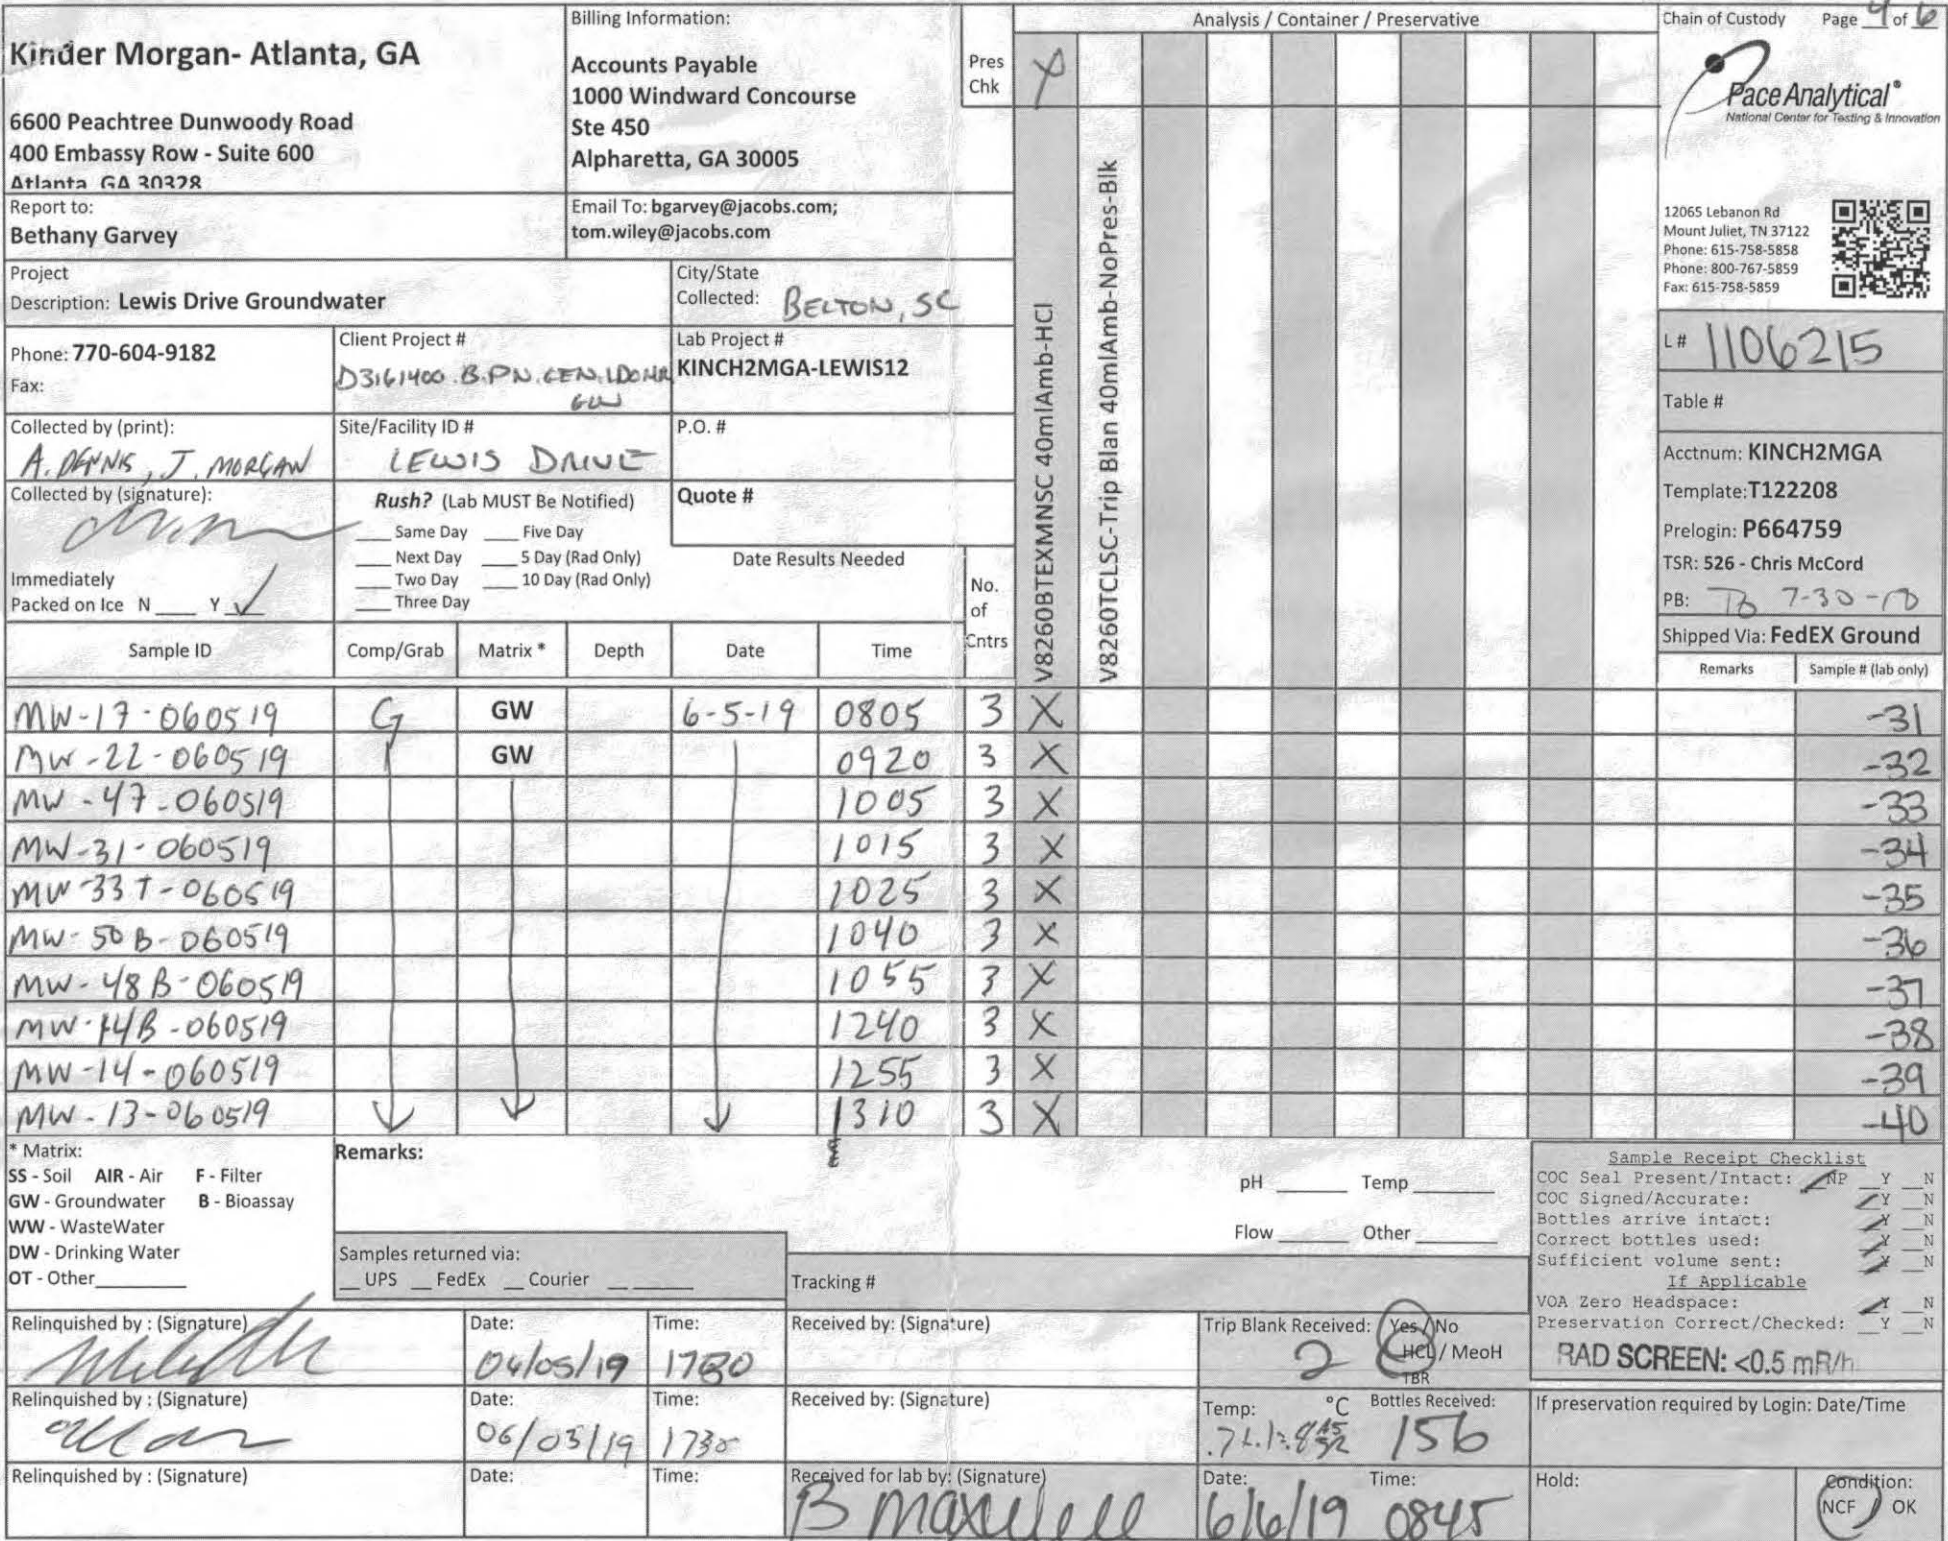 Kinder Morgan- Atlanta, GA
6600 Peachtree Dunwoody Road
400 Embassy Row - Suite 600
Atlanta GA 30328
Billing Information:
Accounts Payable
1000 Windward Concourse
Ste 450
Alpharetta, GA 30005
Pres
Chk
Analysis / Container / Preservative
Chain of Custody Page 4 of 6
Pace Analytical®
National Center for Testing & Innovation
12065 Lebanon Rd
Mount Juliet, TN 37122
Phone: 615-758-5858
Phone: 800-767-5859
Fax: 615-758-5859
Report to:
Bethany Garvey
Email To: bgarvey@jacobs.com;
tom.wiley@jacobs.com
Project
Description: Lewis Drive Groundwater
City/State
Collected: BELTON, SC
Phone: 770-604-9182
Fax:
Client Project #
D3161400.B.PN.GEN.LDONR
GW
Lab Project #
KINCH2MGA-LEWIS12
Collected by (print):
A. DENNIS, J. MORGAN
Site/Facility ID #
LEWIS DRIVE
P.O. #
Collected by (signature):
Rush? (Lab MUST Be Notified)
Same Day Five Day
Next Day 5 Day (Rad Only)
Two Day 10 Day (Rad Only)
Three Day
Quote #
Date Results Needed
Immediately
Packed on Ice N Y ✓
No.
of
Cntrs
V8260BTEXMNSC 40mlAmb-HCl
V8260TCLSC-Trip Blan 40mlAmb-NoPres-Blk
L# 1106215
Table #
Acctnum: KINCH2MGA
Template: T122208
Prelogin: P664759
TSR: 526 - Chris McCord
PB: 7-30-
Shipped Via: FedEX Ground
Sample ID Comp/Grab Matrix * Depth Date Time Remarks Sample # (lab only)
MW-17-060519 G GW 6-5-19 0805 3 X -31
MW-22-060519 GW 0920 3 X -32
MW-47-060519 1005 3 X -33
MW-31-060519 1015 3 X -34
MW-33T-060519 1025 3 X -35
MW-50B-060519 1040 3 X -36
MW-48B-060519 1055 3 X -37
MW-14B-060519 1240 3 X -38
MW-14-060519 1255 3 X -39
MW-13-060519 1310 3 X -40
* Matrix:
SS - Soil AIR - Air F - Filter
GW - Groundwater B - Bioassay
WW - WasteWater
DW - Drinking Water
OT - Other
Remarks:
pH Temp
Flow Other
Samples returned via:
UPS FedEx Courier
Tracking #
Sample Receipt Checklist
COC Seal Present/Intact: NP Y N
COC Signed/Accurate: Y N
Bottles arrive intact: Y N
Correct bottles used: Y N
Sufficient volume sent: Y N
If Applicable
VOA Zero Headspace: Y N
Preservation Correct/Checked: Y N
RAD SCREEN: <0.5 mR/h
Relinquished by : (Signature)
Date: 06/05/19
Time: 1730
Received by: (Signature)
Trip Blank Received: Yes / No
2 HCL / MeoH
TBR
Relinquished by : (Signature)
Date: 06/05/19
Time: 1730
Received by: (Signature)
Temp: °C
Bottles Received: 156
If preservation required by Login: Date/Time
Relinquished by : (Signature)
Date:
Time:
Received for lab by: (Signature)
B Maxwell
Date: 6/6/19
Time: 0845
Hold:
Condition:
NCF / OK